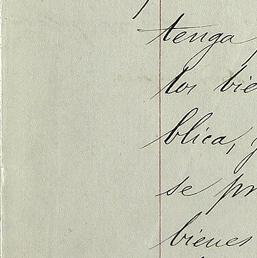 tenga
los bie
blica,
se pr
bienes